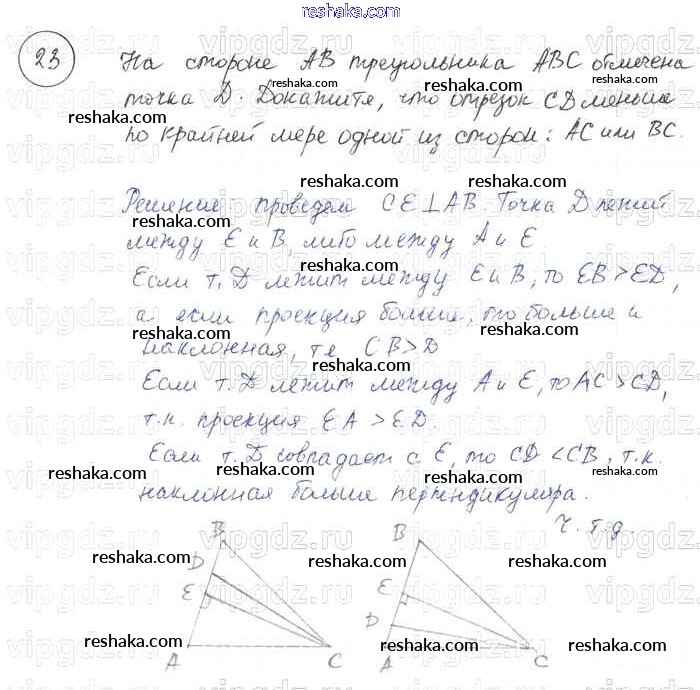 reshaka.com
23 На стороне AB треугольника ABC отмечена
точка D. Докажите, что отрезок CD меньше
по крайней мере одной из сторон: AC или BC.
Решение: проведем CE⊥AB. Точка D лежит
между E и B, либо между A и E
Если т. D лежит между E и B, то EB>ED,
а если проекция больше, то больше и
наклонная, т.е CB>D
Если т. D лежит между A и E, то AC>CD,
т.к. проекция EA>ED.
Если т. D совпадает с E, то CD<CB, т.к.
наклонная больше перпендикуляра.
Ч.т.д.
B D E A C
B E D A C